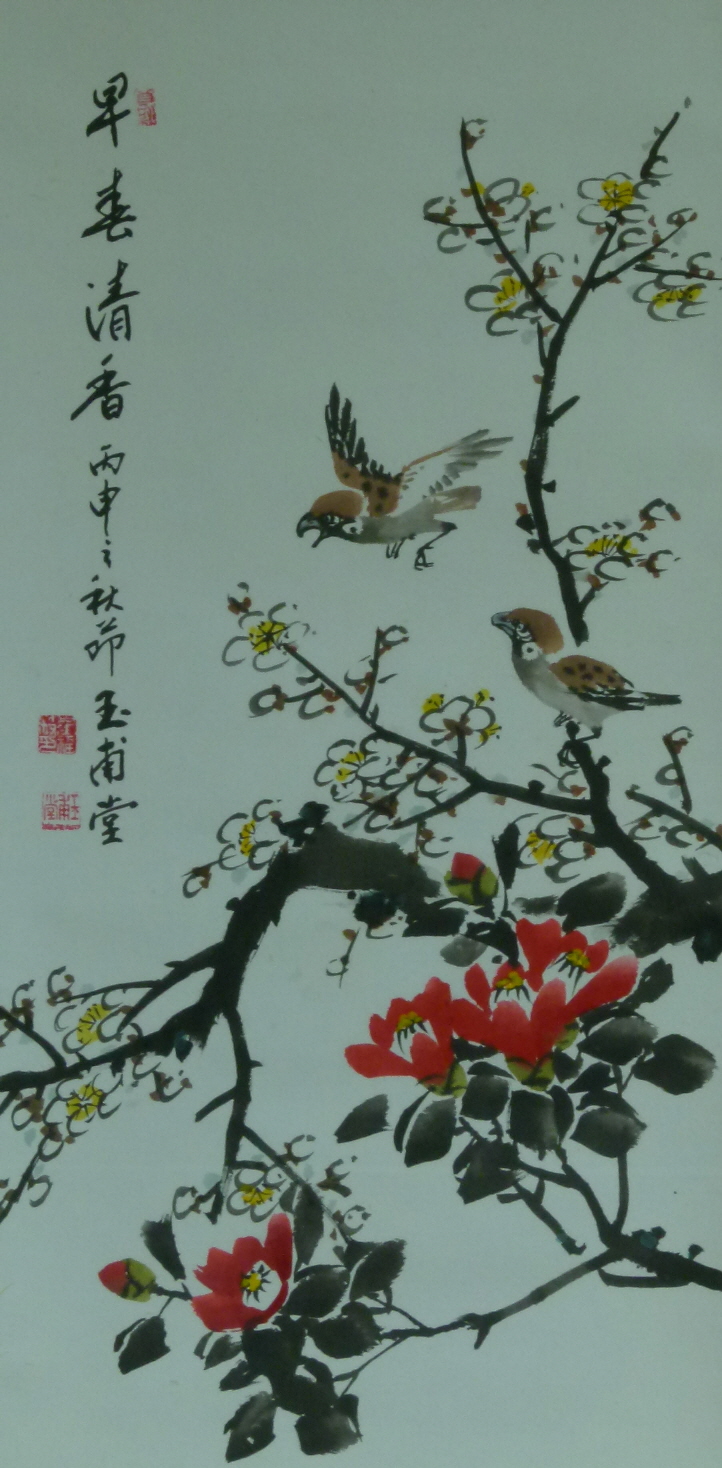 早春清香 丙申之秋節 玉甫堂